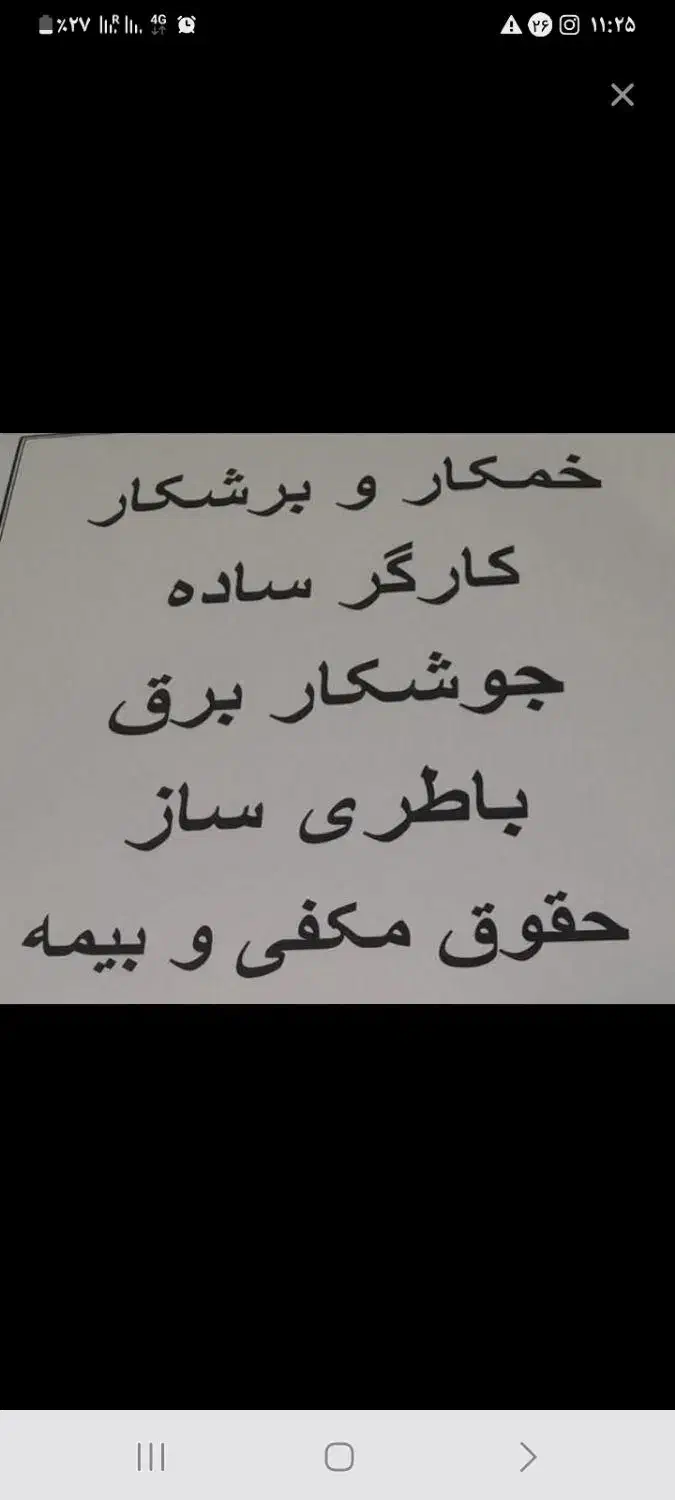 ٪۲۷ R 4G ۲۶ ۱۱:۲۵
خمکار و برشکار
کارگر ساده
جوشکار برق
باطری ساز
حقوق مکفی و بیمه